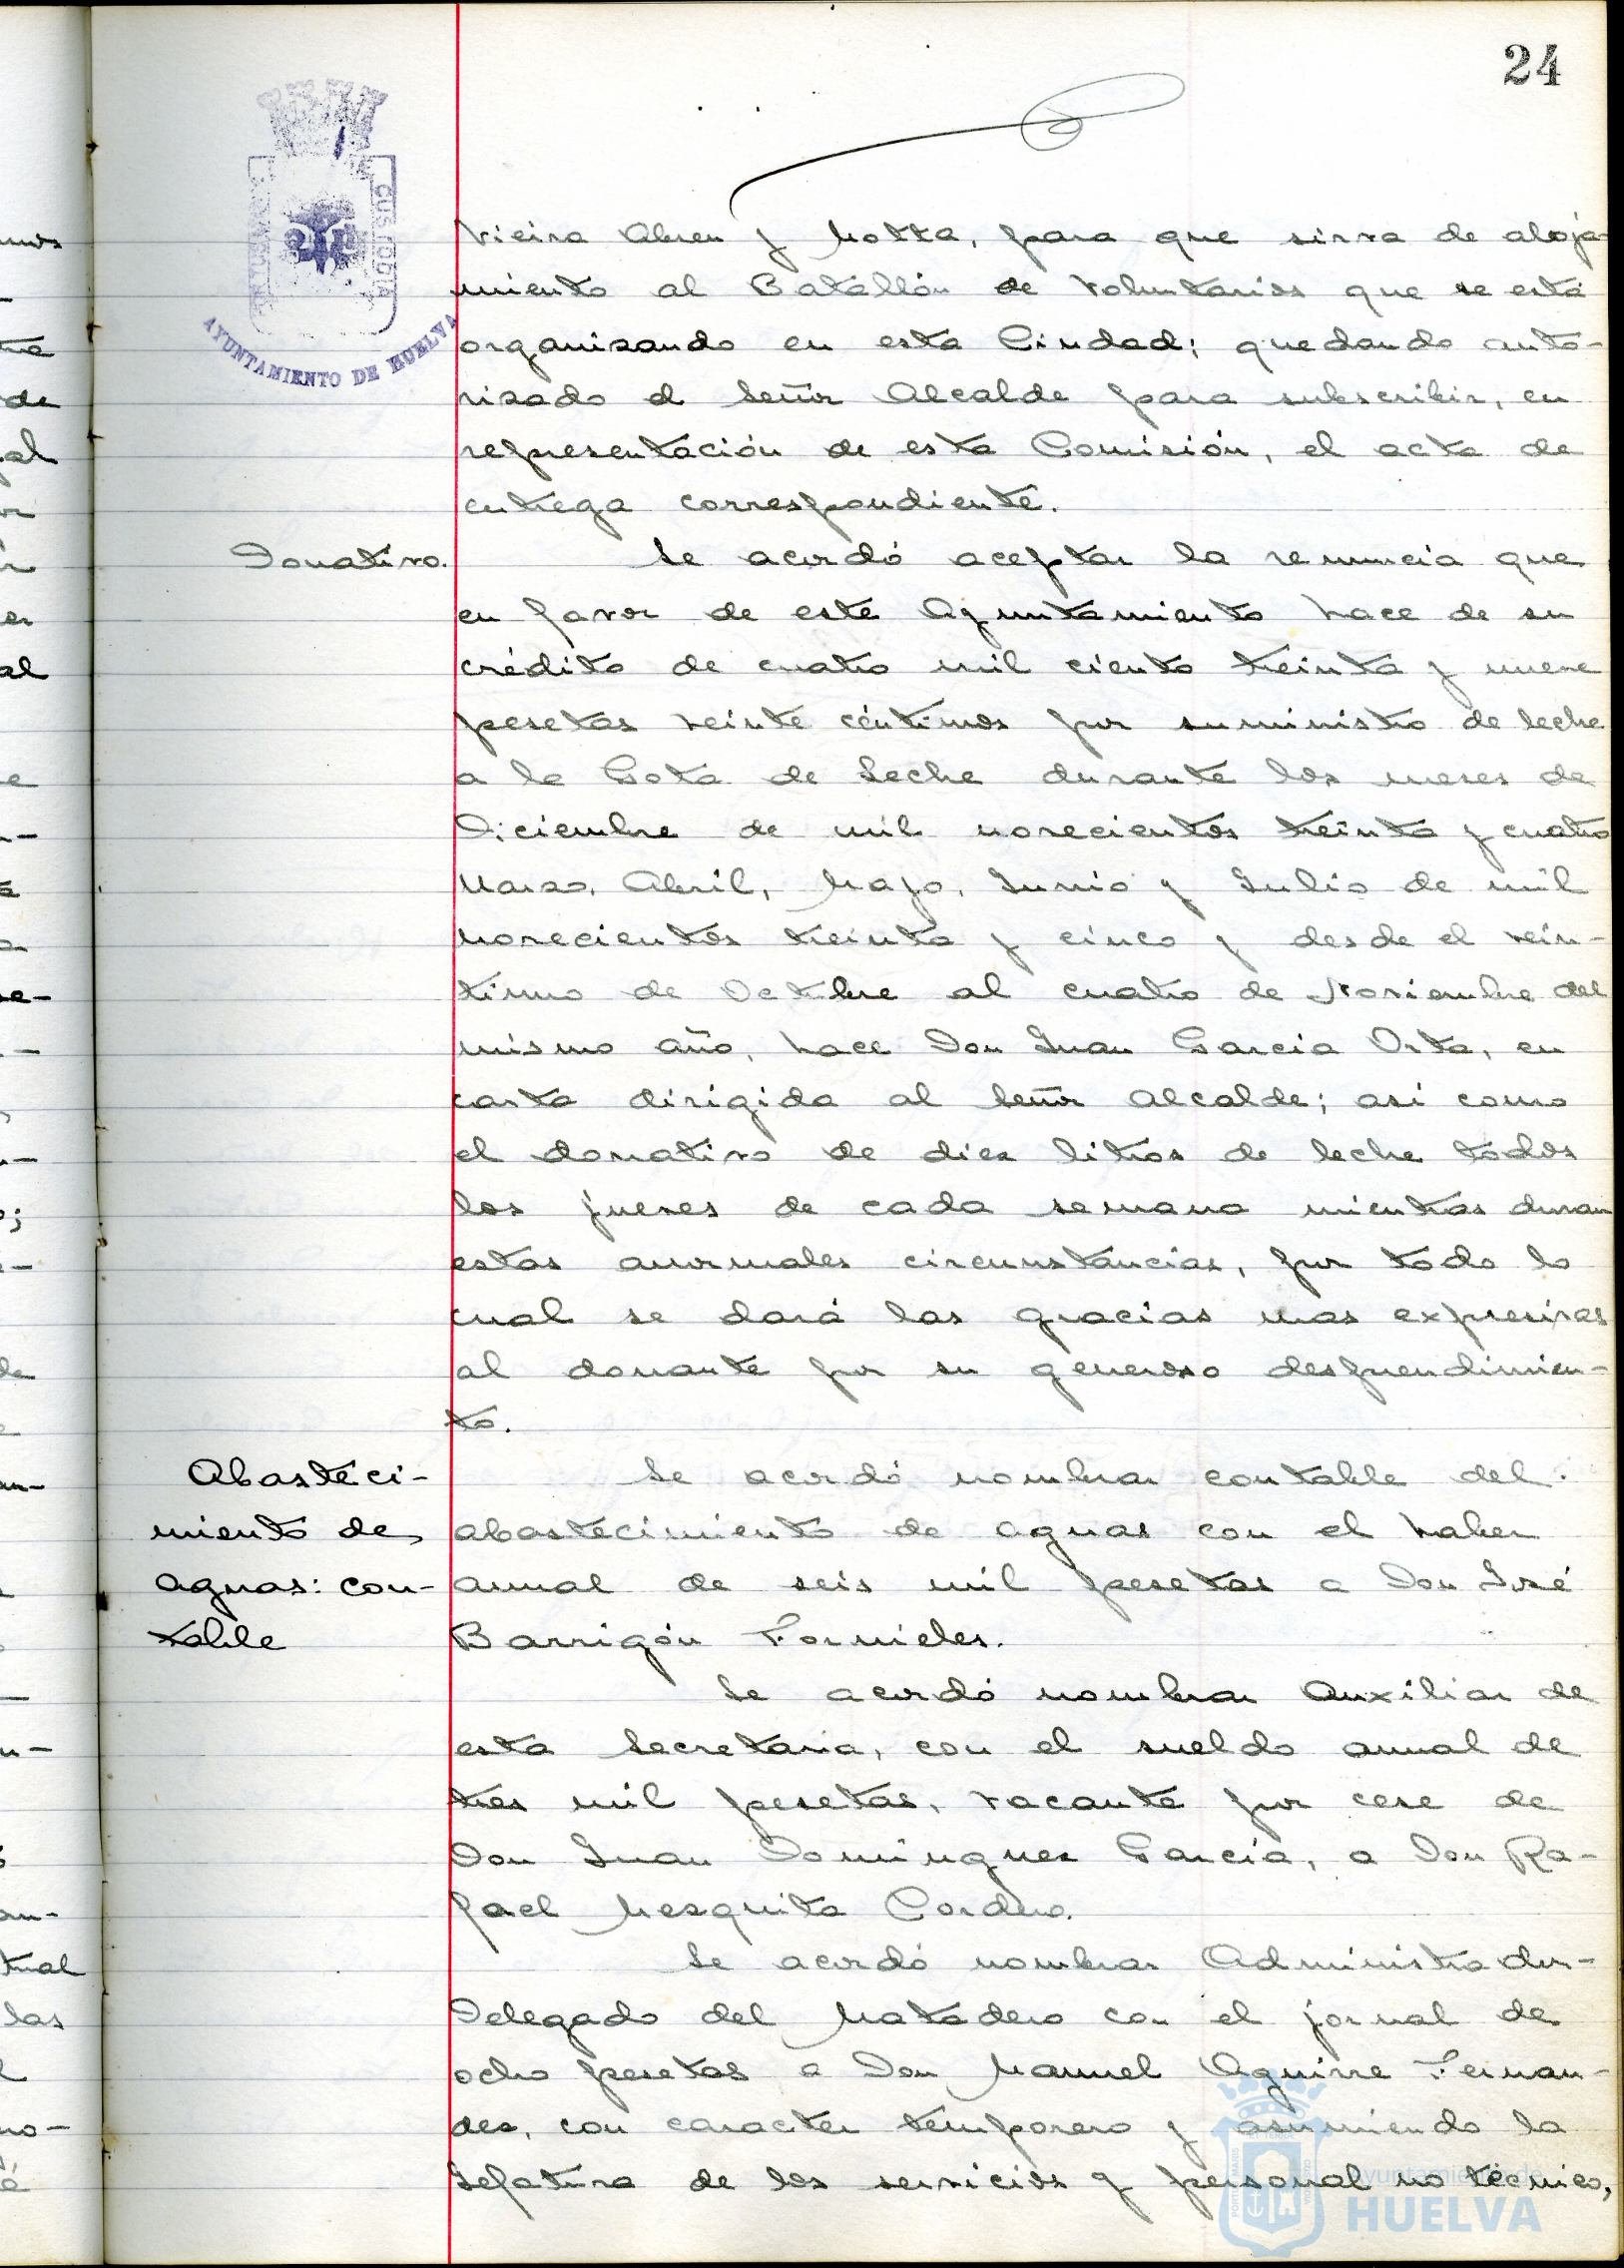 24
CUSTODIA
AYUNTAMIENTO DE HUELVA
Vieira Abreu y Motta, para que sirva de aloja-
miento al Batallón de Voluntarios que se está
organizando en esta Ciudad; quedando auto-
rizado el Señor Alcalde para subscribir, en
representación de esta Comisión, el acta de
entrega correspondiente.
Donativo.
Se acordó aceptar la renuncia que
en favor de este Ayuntamiento hace de su
crédito de cuatro mil ciento treinta y nueve
pesetas veinte céntimos por suministro de leche
a la Gota de Leche durante los meses de
Diciembre de mil novecientos treinta y cuatro
Marzo, Abril, Mayo, Junio y Julio de mil
novecientos treinta y cinco y desde el vein-
tiuno de Octubre al cuatro de Noviembre del
mismo año, hace Don Juan García Orta, en
carta dirigida al Señor Alcalde; así como
el donativo de diez litros de leche todos
los jueves de cada semana mientras duran
estas anormales circunstancias, por todo lo
cual se dará las gracias mas expresivas
al donante por su generoso desprendimien-
to.
Abasteci-
miento de
aguas: con-
table
Se acordó nombrar contable del
abastecimiento de aguas con el haber
anual de seis mil pesetas a Don José
Barrigón Fornieles.
Se acordó nombrar Auxiliar de
esta Secretaria, con el sueldo anual de
tres mil pesetas, vacante por cese de
Don Juan Dominguez García, a Don Ra-
fael Mezquita Cordero.
Se acordó nombrar Administrador-
Delegado del Matadero con el jornal de
ocho pesetas a Don Manuel Aguirre Fernan-
dez, con caracter temporero y asumiendo la
Jefatura de los servicios y personal no técnico,
Ayuntamiento de
HUELVA